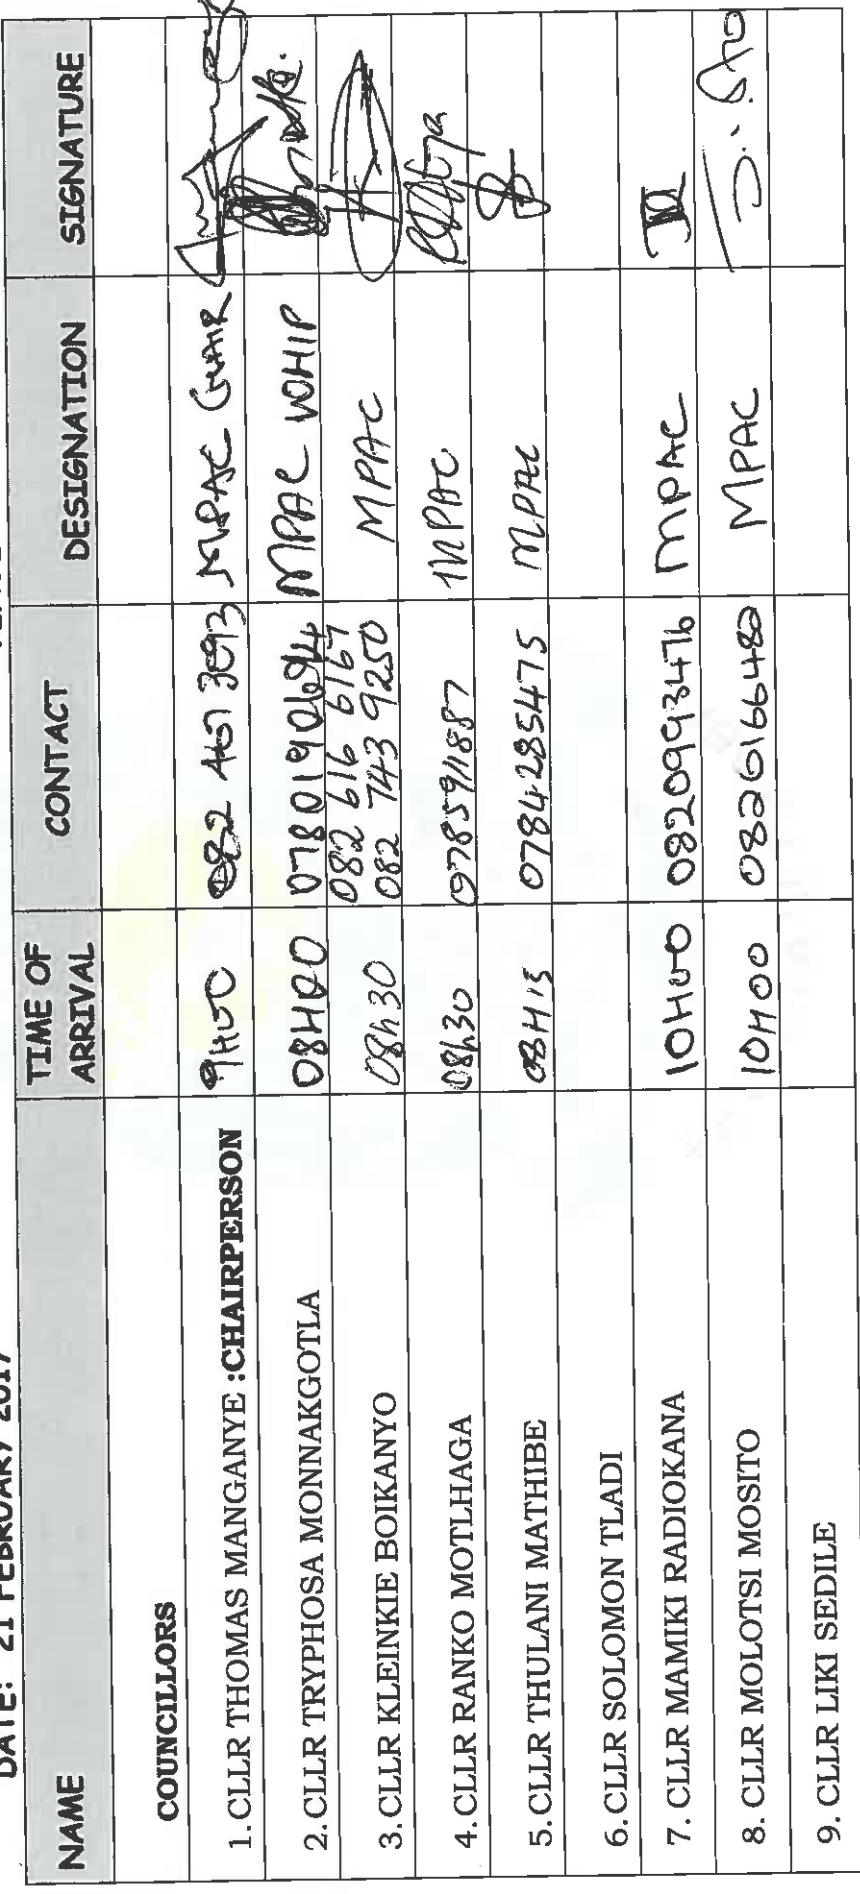 DATE: 21 FEBRUARY 2017
NAME TIME OF ARRIVAL CONTACT DESIGNATION SIGNATURE
COUNCILLORS
1. CLLR THOMAS MANGANYE :CHAIRPERSON 9H00 082 MPAC CHAIR
2. CLLR TRYPHOSA MONNAKGOTLA 08H00 0780190694 MPAC WHIP
3. CLLR KLEINKIE BOIKANYO 08h30 082 616 6167 082 743 9250 MPAC
4. CLLR RANKO MOTLHAGA 08h30 MPAC
5. CLLR THULANI MATHIBE 08H15 0784285475 MPAC
6. CLLR SOLOMON TLADI
7. CLLR MAMIKI RADIOKANA 10H00 0820993476 MPAC
8. CLLR MOLOTSI MOSITO 10H00 0826166482 MPAC
9. CLLR LIKI SEDILE